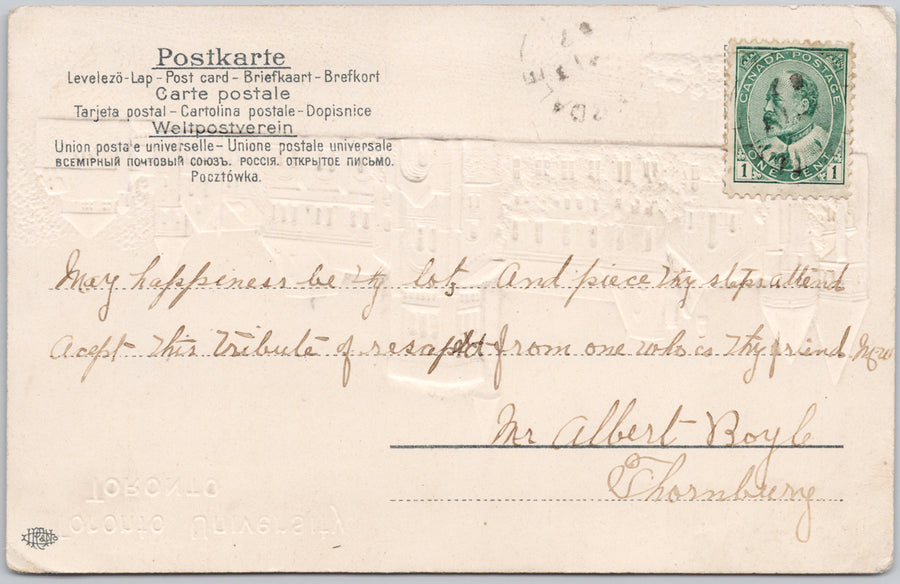 Postkarte
Levelező-Lap – Post card – Briefkaart – Brefkort
Carte postale
Tarjeta postal – Cartolina postale – Dopisnice
Weltpostverein
Union postale universelle – Unione postale universale
ВСЕМІРНЫЙ ПОЧТОВЫЙ СОЮЗЪ. РОССІЯ. ОТКРЫТОЕ ПИСЬМО.
Pocztówka.
CANADA POSTAGE
1 ONE CENT 1
May happiness be thy lot, And piece thy steps attend
Acept this tribute of respect from one who is thy friend
Mr Albert Boyle
Thornbury
TORONTO
Toronto University